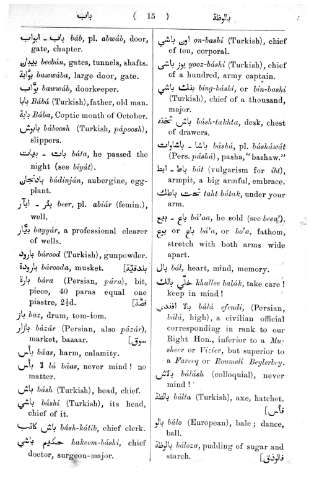 باب ( 15 ) بالوظة
باب - ابواب báb, pl. abwáb, door,
gate, chapter.
bedán, gates, tunnels, shafts.
بوابة bawwába, large door, gate.
بواب bawwáb, doorkeeper.
بابا Bábá (Turkish), father, old man.
بابة Bába, Coptic month of October.
بابوش báboosh (Turkish, pápoosh),
slippers.
بات - بيات báta, he passed the
night (see bíyát).
بادنجان bádinján, aubergine, egg-
plant.
بئر - ابيار beer, pl. abiár (femin.),
well.
بيار bayyár, a professional clearer
of wells.
بارود bárood (Turkish), gunpowder.
بارودة bárooda, musket. [بندقية
بارة bára (Persian, pára), bit,
piece, 40 paras equal one
piastre, 2½d. [فضة
باز baz, drum, tom-tom.
بازار bázár (Persian, also pázár),
market, bazaar. [سوق
بأس báas, harm, calamity.
لا بأس lá báas, never mind! no
matter.
باش básh (Turkish), head, chief.
باشي báshi (Turkish), its head,
chief of it.
باش كاتب básh-kátib, chief clerk.
حكيم باشي hakeem-báshi, chief
doctor, surgeon-major.
اون باشي on-bashi (Turkish), chief
of ten, corporal.
يوز باشي yooz-báshi (Turkish), chief
of a hundred, army captain.
بنك باشي bing-báshi, or bin-bashi
(Turkish), chief of a thousand,
major.
باش تختة básh-takhta, desk, chest
of drawers.
باشا - باشاوات básha, pl. básháwát
(Pers. páshá), pasha, "bashaw."
باط - ابط bát (vulgarism for ibt),
armpit, a big armful, embrace.
تحت باطك taht bátak, under your
arm.
باع - بيع bá'aa, he sold (see beea').
باع or بوع bá'a, or bo'a, fathom,
stretch with both arms wide
apart.
بال bál, heart, mind, memory.
خلي بالك khallee balák, take care!
keep in mind!
بالا افندي bálá efendi, (Persian,
bálá, high), a civilian official
corresponding in rank to our
Right Hon., inferior to a Mu-
sheer or Vizier, but superior to
a Fareeq or Roumeli Beylerbey.
بلاش bálásh (colloquial), never
mind!
بالطة bálta (Turkish), axe, hatchet.
[فأس
بالو bálo (European), bale; dance,
ball.
بالوظة báloza, pudding of sugar and
starch. [فالوذق